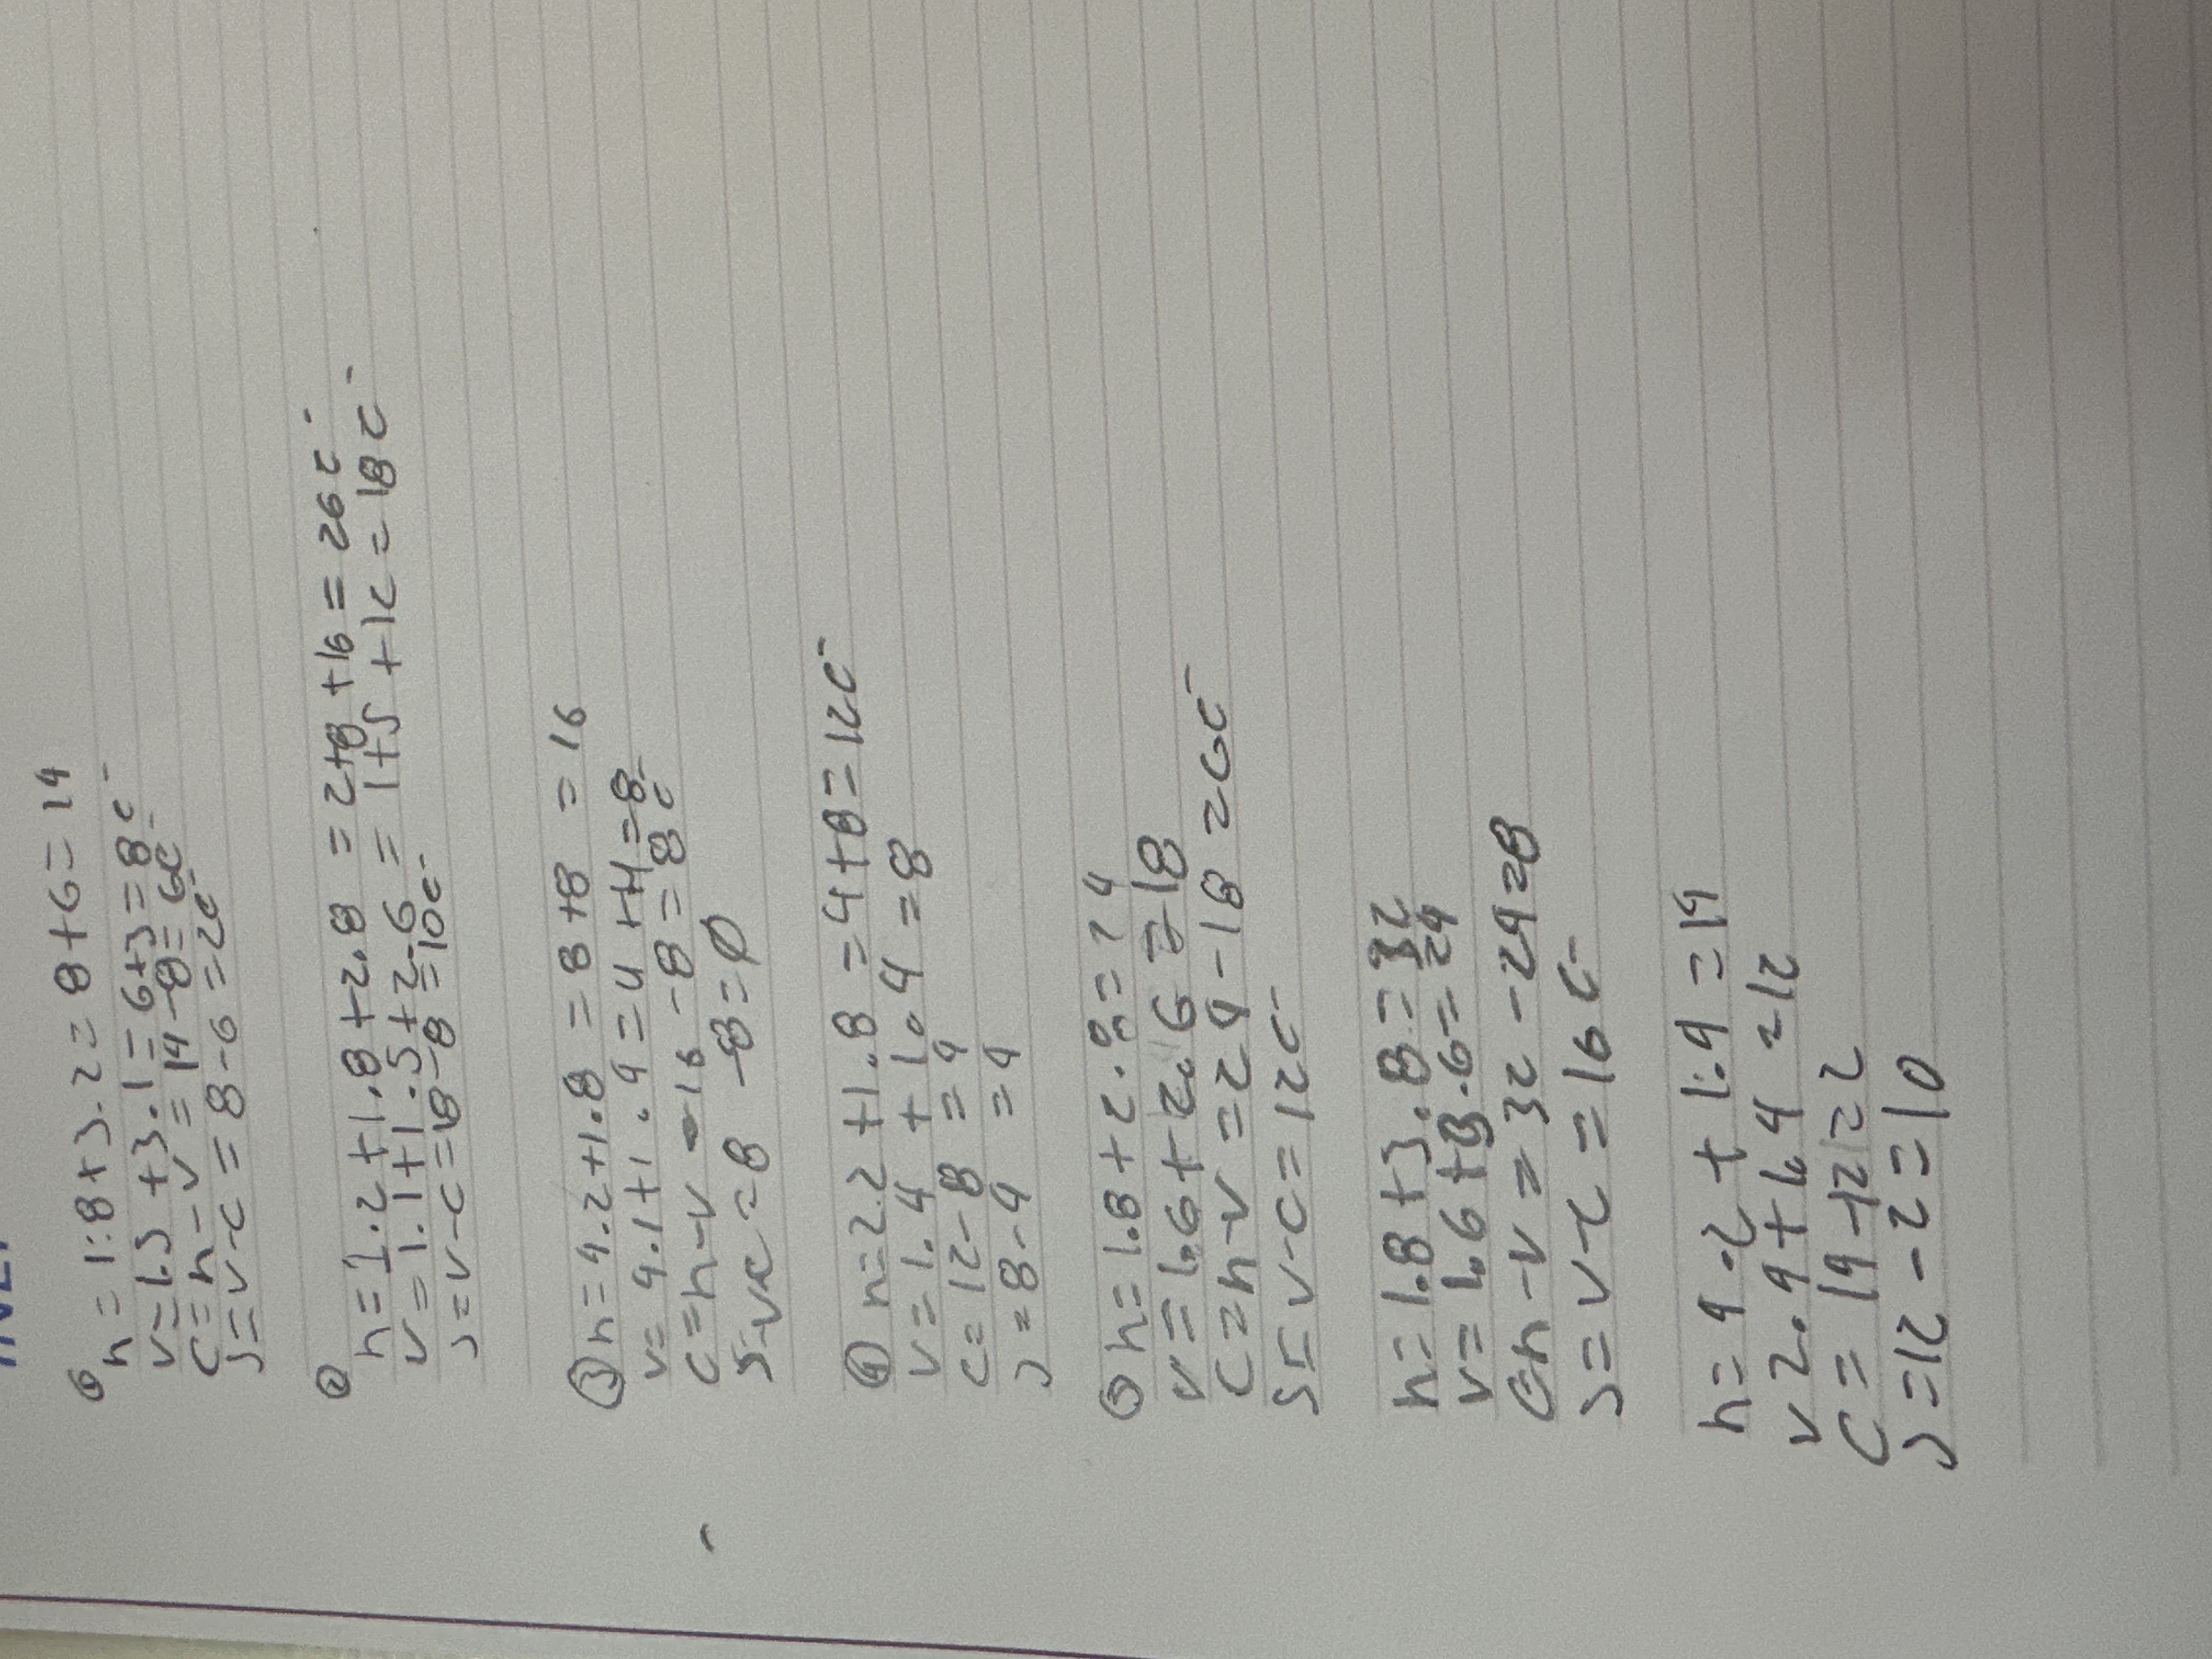 ①
n = 1.8 + 3.2 = 8 + 6 = 14
v = 1.5 + 3.1 = 6 + 3 = 8e-
c = n - v = 14 - 8 = 6e-
s = v - c = 8 - 6 = 2e-
②
n = 1.2 + 1.8 + 2.8 = 2 + 8 + 16 = 26e-
v = 1.1 + 1.5 + 2.6 = 1 + 5 + 12 = 18e-
s = v - c = 18 - 8 = 10e-
③ n = 4.2 + 1.8 = 8 + 8 = 16
v = 4.1 + 1.4 = 4 + 4 = 8e-
c = n - v = 16 - 8 = 8e-
s = v - c = 8 - 8 = 0
④ n = 2.2 + 1.8 = 4 + 8 = 12e-
v = 1.4 + 1.4 = 8
c = 12 - 8 = 4
s = 8 - 4 = 4
⑤ n = 1.8 + 2.8 = 24
v = 1.6 + 2.6 = 18
c = n - v = 24 - 18 = 6e-
s = v - c = 12e-
n = 1.8 + 3.8 = 32
v = 1.6 + 3.6 = 24
c = n - v = 32 - 24 = 8
s = v - c = 16e-
n = 4.2 + 1.4 = 14
v 2.4 + 1.4 = 12
c = 14 - 12 = 2
s = 12 - 2 = 10